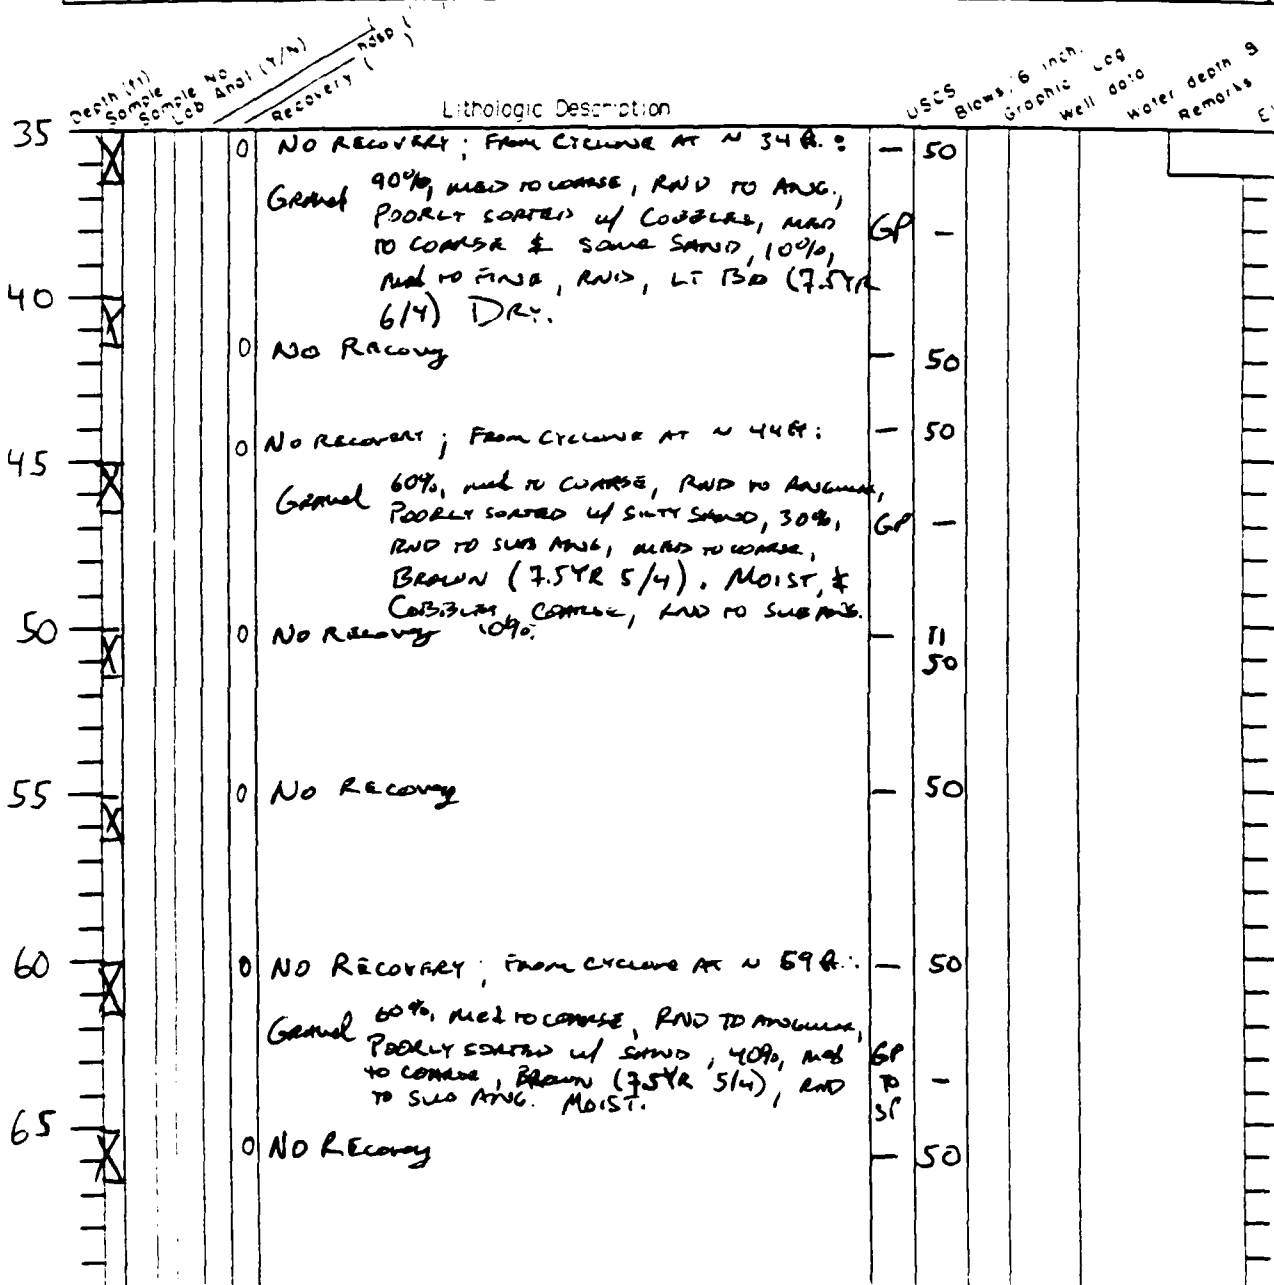 Depth (ft) Sample Sample No Lab Anal (Y/N) Recovery ( ) Lithologic Description USCS Blows/6 inch. Graphic Log Well data Water depth Remarks
35 0 NO RECOVERY ; FROM CYCLONE AT ~ 34 ft. : — 50
Gravel 90%, MED TO COARSE, RND TO ANG.,
POORLY SORTED w/ COBBLES, MED GP –
TO COARSE & SOME SAND, 10%,
MED TO FINE, RND, LT BR (7.5YR
40 6/4) DRY.
0 NO Recovery — 50
0 NO RECOVERY ; FROM CYCLONE AT ~ 44 ft : — 50
45 Gravel 60%, med to COARSE, RND TO ANGULAR,
POORLY SORTED w/ SILTY SAND, 30%, GP –
RND TO SUB ANG, MED TO COARSE,
BROWN (7.5YR 5/4). MOIST, &
COBBLES, COARSE, RND TO SUB ANG.
50 0 NO Recovery 10%. — 11
50
55 0 NO Recovery — 50
60 0 NO RECOVERY ; FROM CYCLONE AT ~ 59 ft. : — 50
Gravel 60%, Med TO COARSE, RND TO ANGULAR,
POORLY SORTED w/ SAND, 40%, med GP
to COARSE, BROWN (7.5YR 5/4), RND TO –
TO SUB ANG. MOIST. SP
65 0 NO Recovery — 50